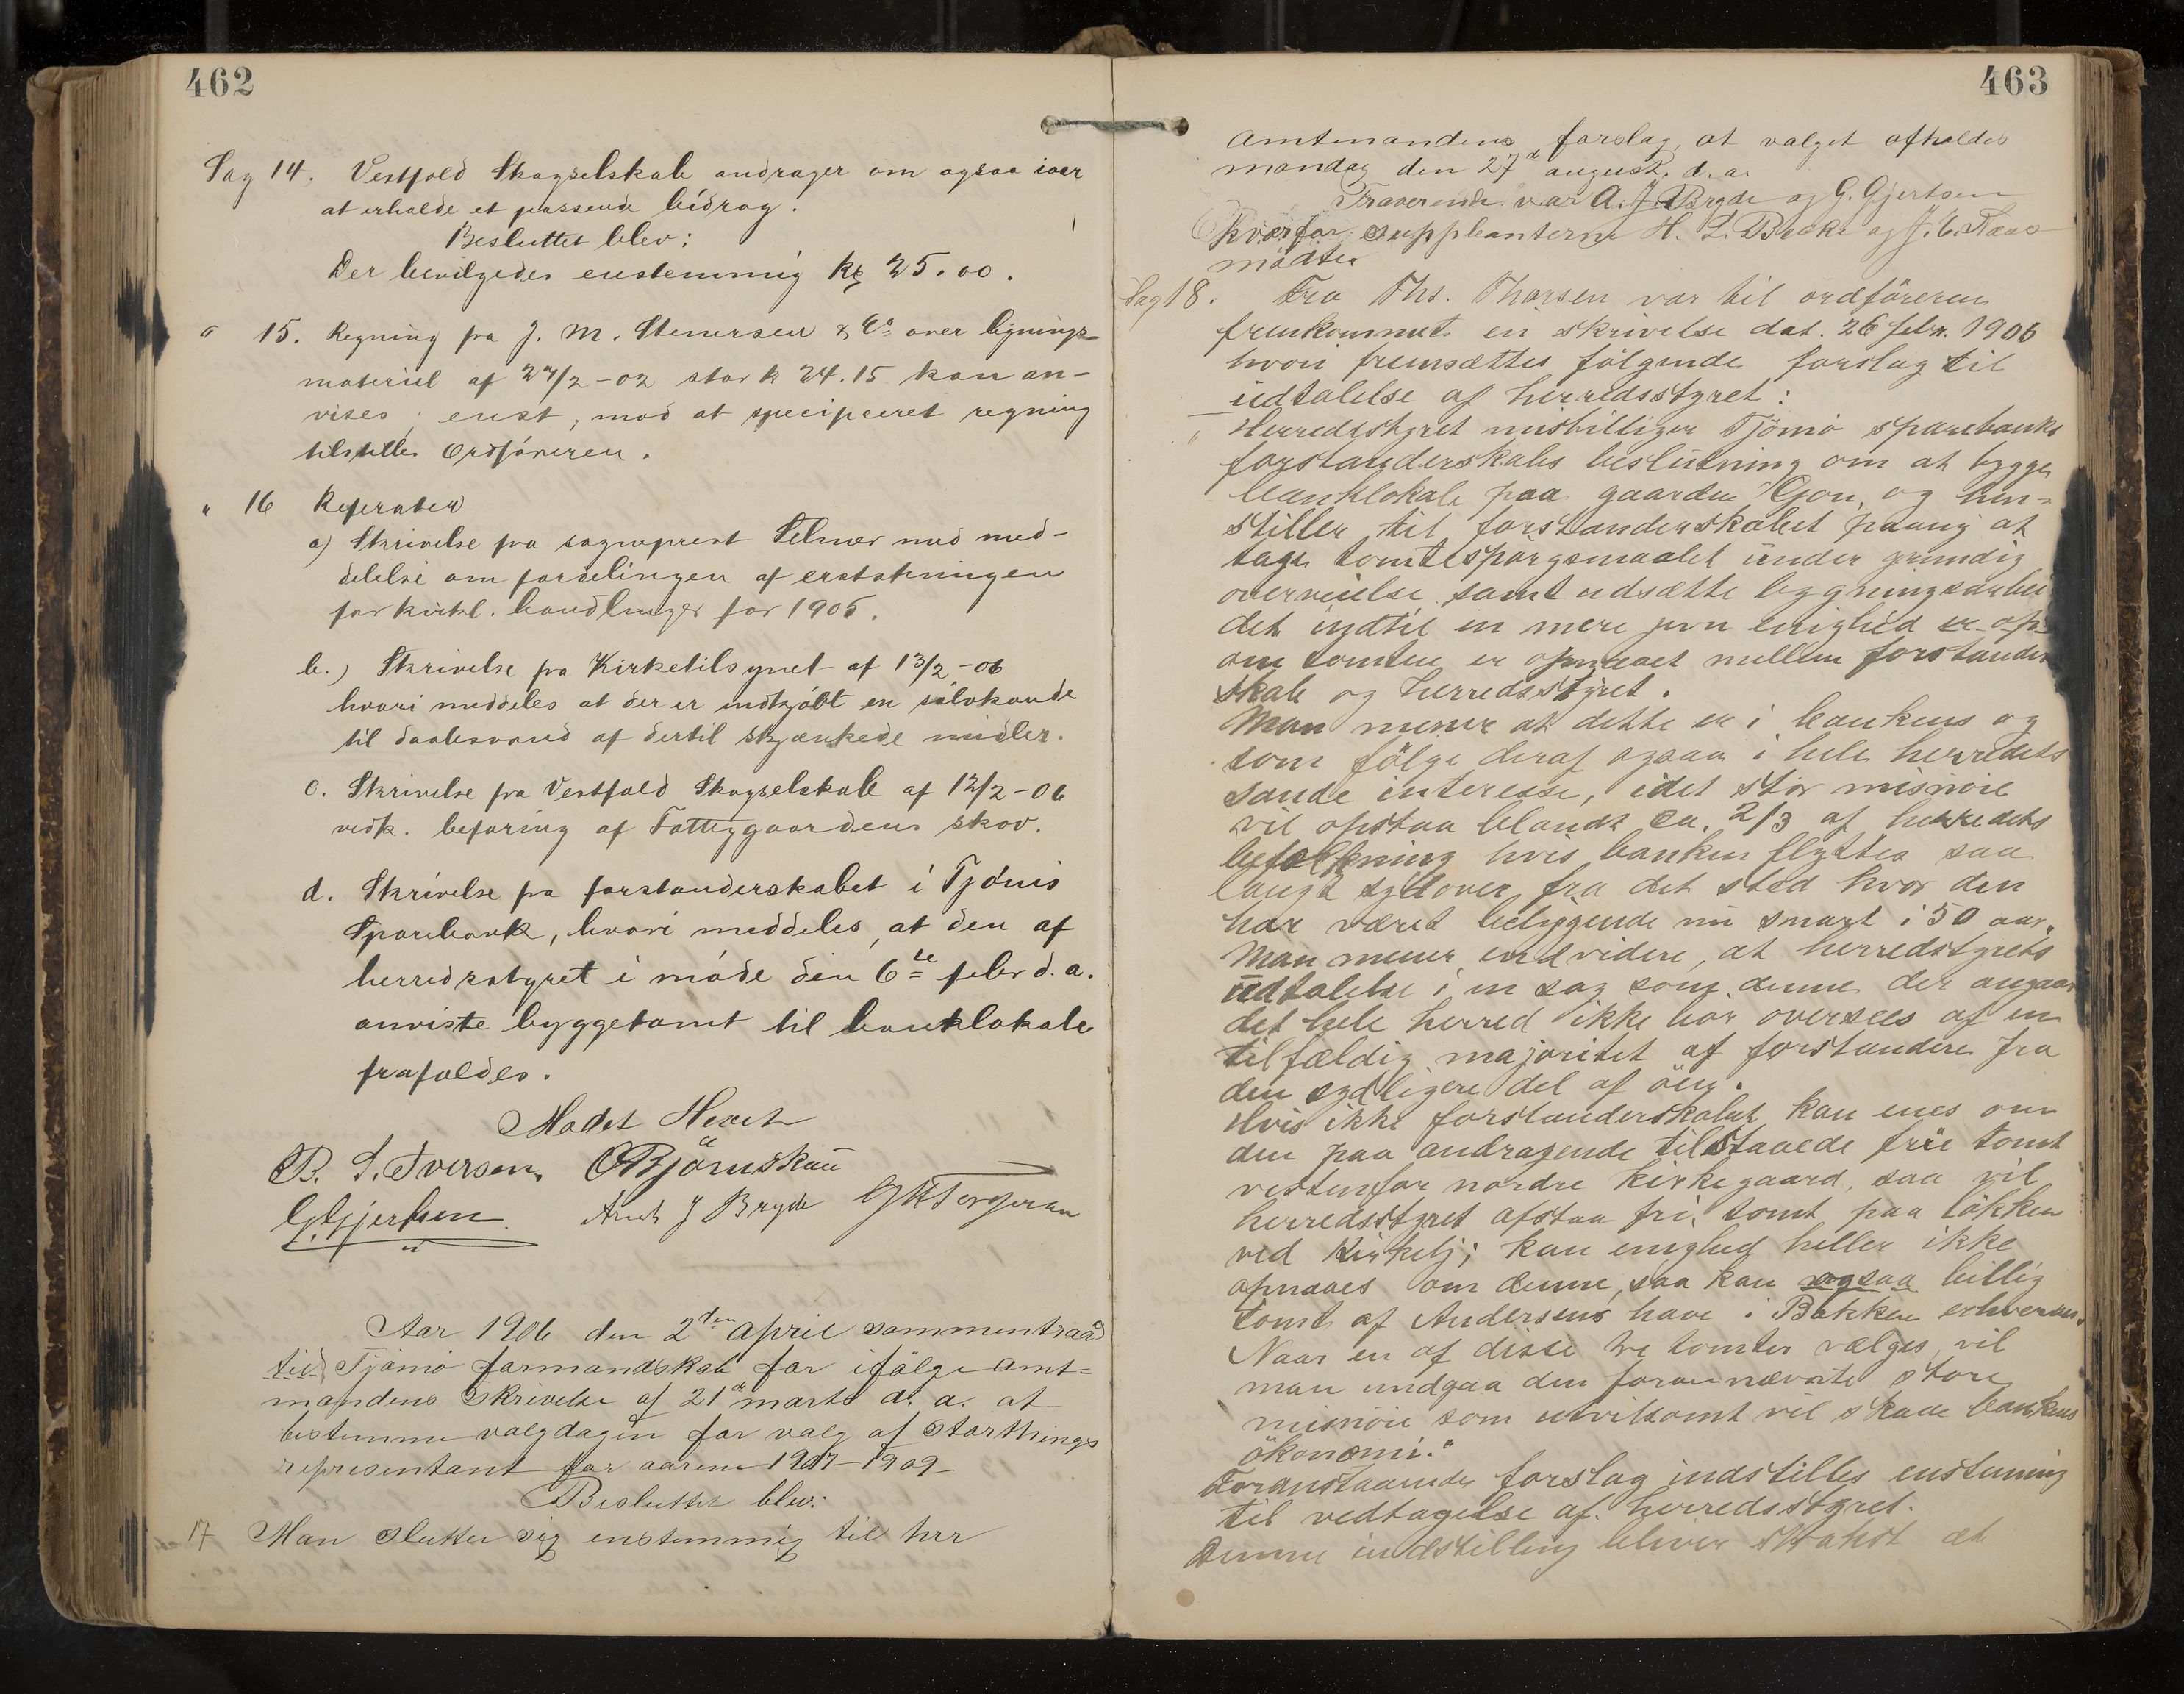 462
Sag 14. Vestfold Skogselskab andrager om ogsaa iaar
at erholde et passende bidrag.
Besluttet blev:
Der bevilgedes enstemmig kr 25.00.
" 15. Regning fra J. M. Stenersen & Co over lignings-
materiel af 27/2-02 stor k 24.15 kan an-
vises, enst, mod at specificeret regning
tilstilles Ordføreren.
" 16 Referater
a) Skrivelse fra sogneprest Selmer med med-
delelse om fordelingen af erstatningen
for kirkl. handlinger for 1905.
b.) Skrivelse fra Kirketilsynet af 13/2-06
hvori meddeles at der er indkjøbt en sølvkande
til daabsvand af dertil skjænkede midler.
c. Skrivelse fra Vestfold Skogselskab af 12/2-06
vedk. befaring af Fattiggaardens skov.
d. Skrivelse fra forstanderskabet i Tjømø
Sparebank, hvori meddeles, at den af
herredsstyret i møde den 6te febr d. a.
anviste byggetomt til banklokale
frafaldes.
Mødet Hævet
B. S. Iversen. O Bjørnskau
G. Gjertsen Anch J Bryde
Aar 1906 den 2den april sammentraadte
Tjømø formandskab for ifølge amt-
mandens Skrivelse af 21de marts d. a. at
bestemme valgdagen for valg af Storthings
representant for aarene 1907-1909-
Besluttet blev:
17 Man slutter sig enstemmig til hrr
463
Amtmandens forslag, at valget afholdes
mandag den 27de august d. a.
Fraverende var A. J. Bryde og G. Gjertsen
hvorfor suppleanterne H. L. Bakke og J. C.
mødte
Sag 18. Fra Ths. Thorsen var til ordføreren
fremkommet en skrivelse dat. 26 febr. 1906
hvori fremsættes følgende forslag til
udtalelse af herredsstyret:
" Herredsstyret misbilliger Tjømø sparebanks
forstanderskabs beslutning om at bygge
banklokale paa gaarden Gjon, og hen-
stiller til forstanderskabet paany at
tage tomtespørgsmaalet under grundig
overveielse samt udsætte bygningsarbei
det indtil en mere jevn enighed er op-
om tomten er opnaaet mellem forstander
skab og herredsstyret.
Man mener at dette er i bankens og
som følge deraf ogsaa i hele herredets
sande interesse, idet stor misnøie
vil opstaa blandt ca. 2/3 af herredets
befolkning hvis banken flyttes saa
langt sydover fra det sted hvor den
har været beliggende nu snart i 50 aar.
Man mener endvidere, at herredstyrets
udtalelse i en sag som denne der angaar
det hele herred ikke bør oversees af en
tilfældig majoritet af forstandere fra
den sydligere del af øen.
Hvis ikke forstanderskabet kan enes om
den paa andragende tilstaaede frie tomt
vestenfor nordre kirkegaard, saa vil
herredsstyret afstaa fri tomt paa løkken
ved Kirkelj; kan enighed heller ikke
opnaaes om denne, saa kan ogsaa billig
tomt af Andersens have i Bakken erhverves.
Naar en af disse tre tomter vælges, vil
man undgaa den forannævnte store
misnøie som utvilsomt vil skade bankens
økonomi."
Foranstaaende forslag indstilles enstemmig
til vedtagelse af herredsstyret.
Denne indstilling bliver strakst at